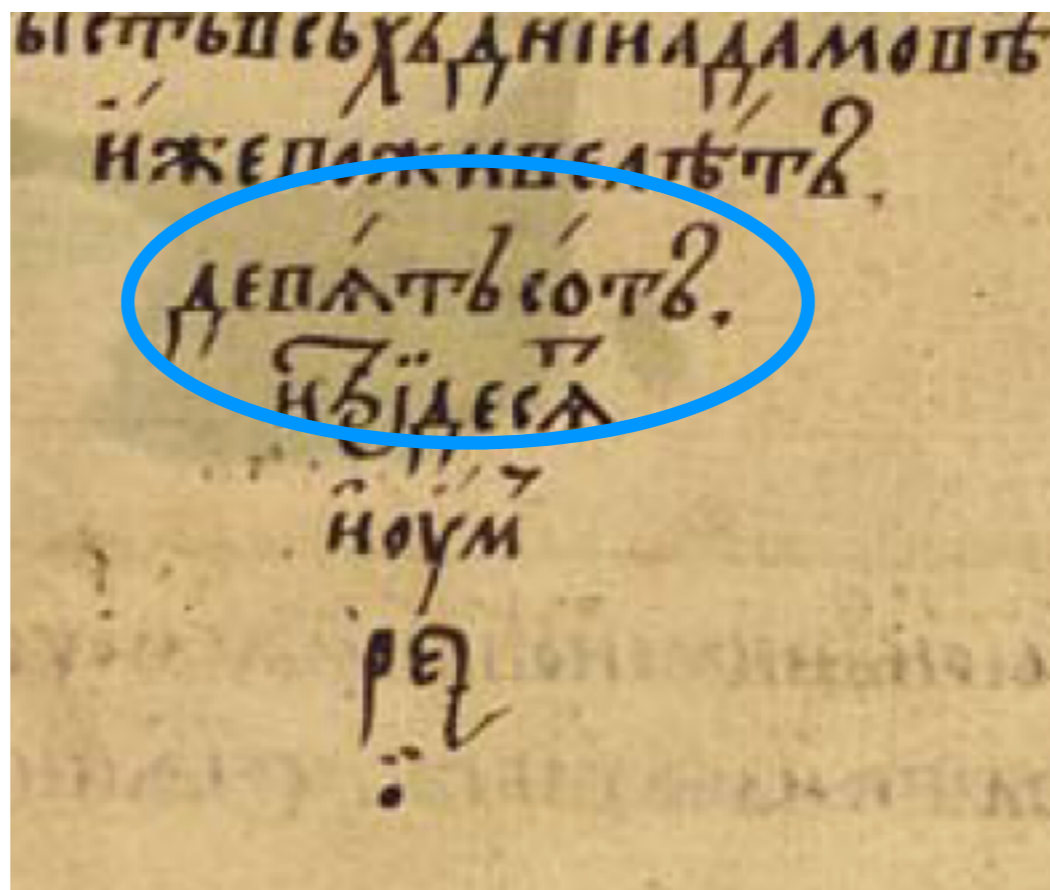 ыстьвсьхъднїиадамовѣ
и҆жепоживелѣ́тъ.
девѧ́тьсо́тъ.
и҆трїдесѧⷮ
и҆оу́м
ре